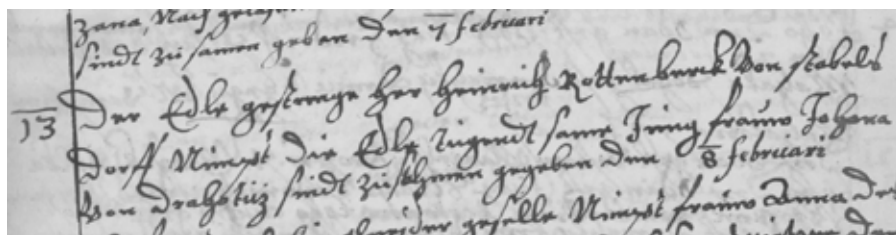 sindt zu samen geben den 7 februari
13
Der Edle gestrenge Her Heinrich Rottenberck Von stabels
dorff Nimpt die Edle tugendt same Jung frauw Johana
Von drahotuz sindt zusamen gegeben den 8 februari
geselle Nimpt frauw Anna